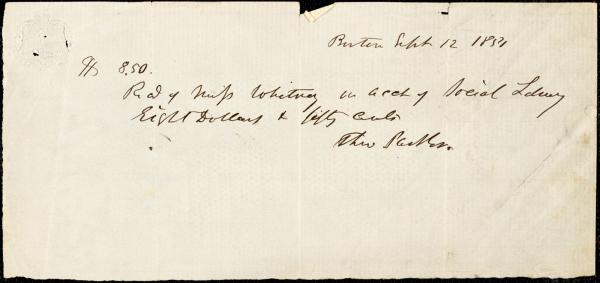 Boston Sept 12 1854
$ 8.50.
Rec'd of Miss Whitney on acct of Social Library
Eight Dollars & fifty cents
Theo Parker.